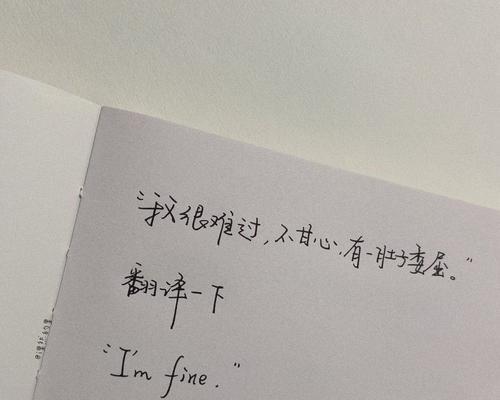 “我很难过，不甘心，有一肚子委屈。”
翻译一下
“I'm fine.”